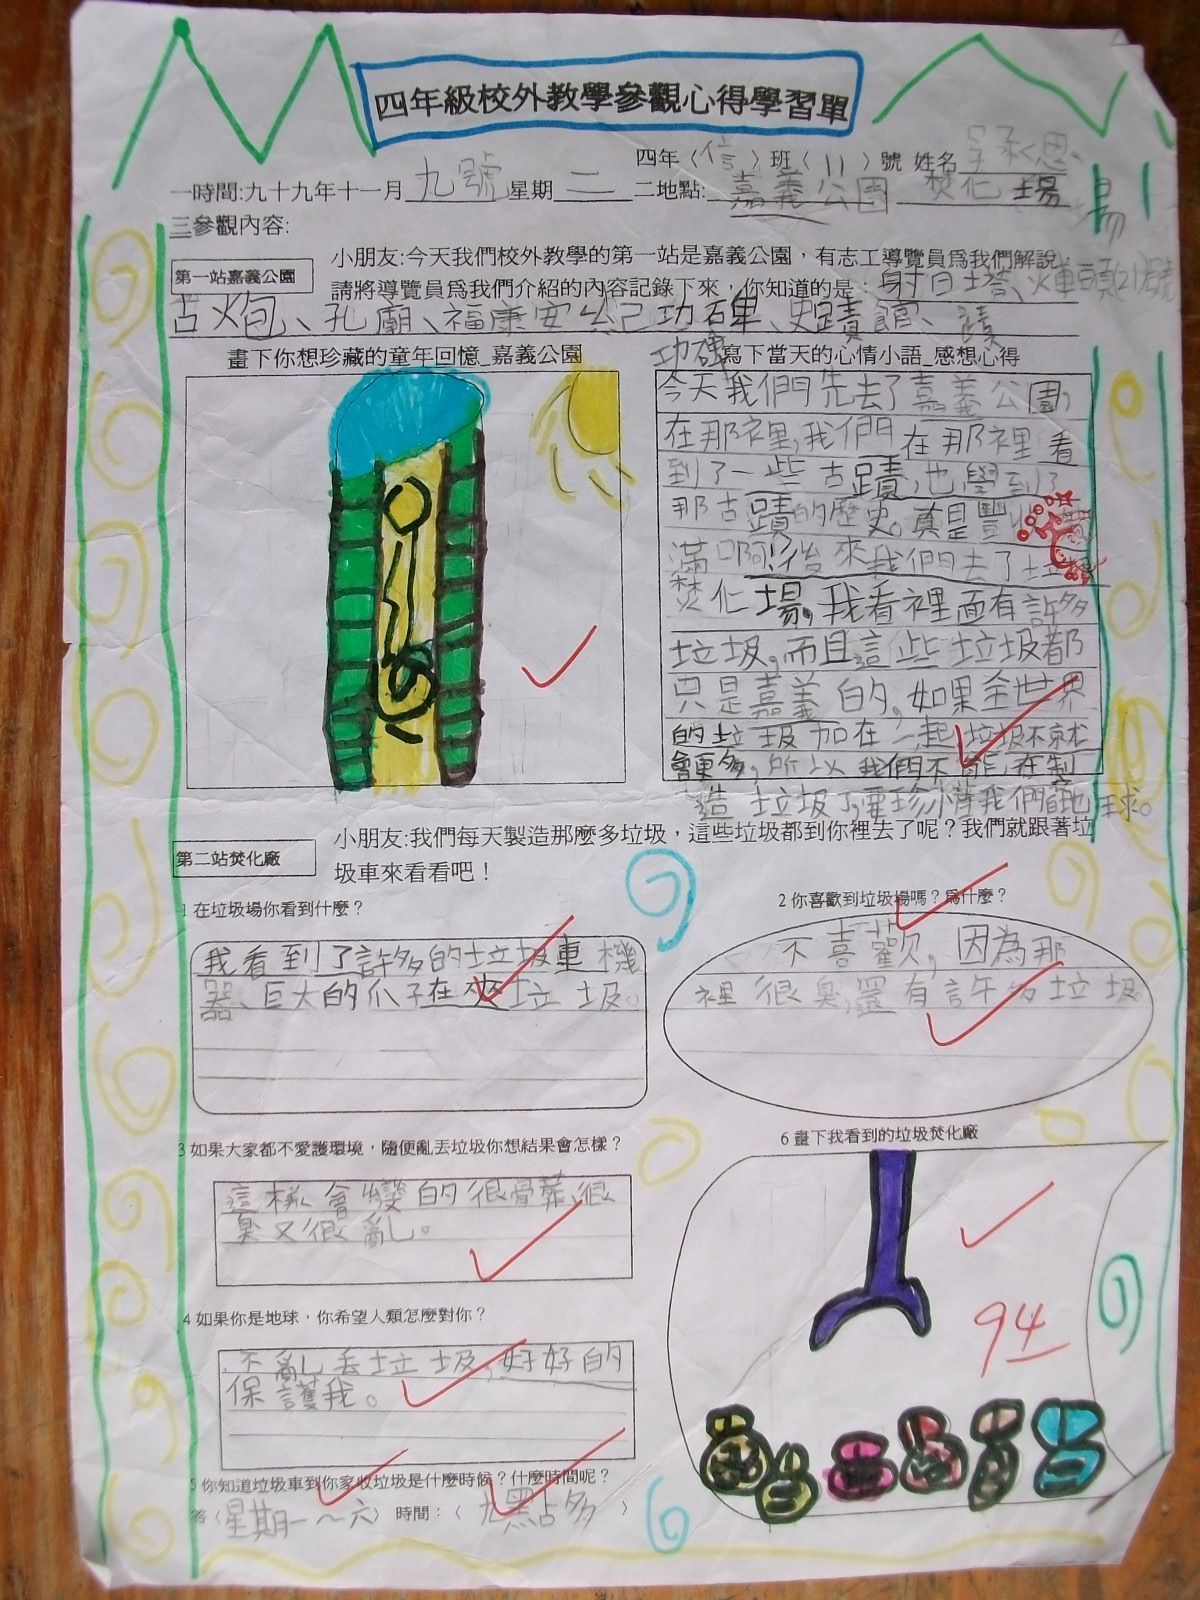 四年級校外教學參觀心得學習單
四年〈信〉班〈11〉號 姓名 承恩
一時間:九十九年十一月九號星期二 二地點:嘉義公園 焚化場 場
三參觀內容:
第一站嘉義公園
小朋友:今天我們校外教學的第一站是嘉義公園，有志工導覽員為我們解說，
請將導覽員為我們介紹的內容記錄下來，你知道的是：射日塔、火車頭21號
古炮、孔廟、福康安生祠功碑、史蹟館、蹟
功碑
畫下你想珍藏的童年回憶_嘉義公園
寫下當天的心情小語_感想心得
今天我們先去了嘉義公園，
在那裡，我們在那裡看
到了一些古蹟，也學到了
那古蹟的歷史。真是豐收
滿 啊!後來我們去了垃圾
焚化場，我看裡面有許多
垃圾，而且這些垃圾都
只是嘉義的，如果全世界
的垃圾加在一起垃圾不就
會更多，所以我們不能在製
造垃圾了要珍惜我們 地球。
第二站焚化廠
小朋友:我們每天製造那麼多垃圾，這些垃圾都到你裡去了呢？我們就跟著垃
圾車來看看吧！
1 在垃圾場你看到什麼？
我看到了許多的垃圾車 機
器、巨大的爪子在夾垃圾。
2 你喜歡到垃圾場嗎？為什麼？
不喜歡，因為那
裡很臭，還有許多垃圾
3 如果大家都不愛護環境，隨便亂丟垃圾你想結果會怎樣？
這樣會變的很骨葬很
臭又很亂。
4 如果你是地球，你希望人類怎麼對你？
不亂丟垃圾，好好的
保護我。
5 你知道垃圾車到你家收垃圾是什麼時候？什麼時間呢？
答〈星期一～六〉時間：〈九點多〉
6 畫下我看到的垃圾焚化廠
94